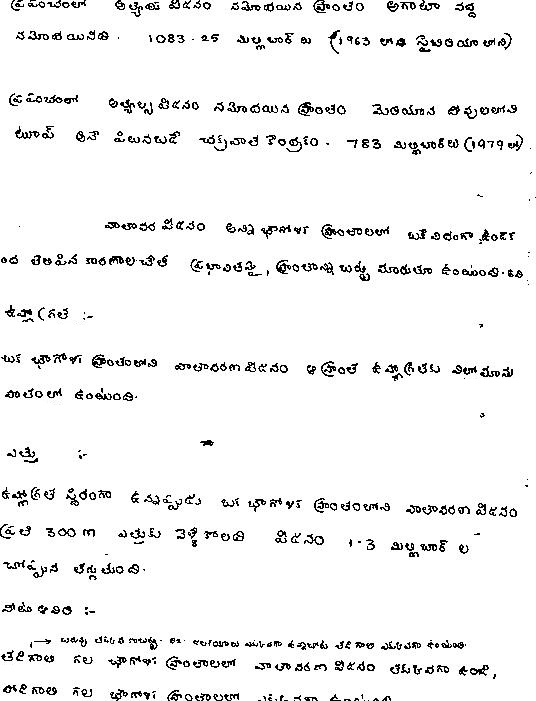 ప్రపంచంలో అత్యధిక పీడనం నమోదయిన ప్రాంతం అగాటా వద్ద
నమోదయినది. 1083.25 మిల్లీబార్ లు (1963 లోని సైబీరియాలోని)
ప్రపంచంలో అత్యల్ప పీడనం నమోదయిన ప్రాంతం మెరియానా దీవులలోని
టూప్ అనే పిలువబడే చక్రవాత కేంద్రకం. 783 మిల్లీబార్‌లు (1979 లో)
వాతావరణ పీడనం అన్ని భౌగోళిక ప్రాంతాలలో ఒకే విధంగా ఉండక
ఈ తెలిపిన కారణాలచేత ప్రభావితమై, ప్రాంతాన్ని బట్టి మారుతూ ఉంటుంది. అవి
ఉష్ణోగ్రత :-
ఒక భౌగోళిక ప్రాంతంలోని వాతావరణ పీడనం ఆ ప్రాంత ఉష్ణోగ్రతకు విలోమాను
పాతంలో ఉంటుంది.
ఎత్తు :-
ఉష్ణోగ్రత స్థిరంగా ఉన్నప్పుడు ఒక భౌగోళిక ప్రాంతంలోని వాతావరణ పీడనం
ప్రతి 300 m ఎత్తుకు వెళ్ళేకొలది పీడనం 1.3 మిల్లీబార్ ల
చొప్పున తగ్గుతుంది.
నీటి ఆవిరి :-
తడిగాలి గల భౌగోళిక ప్రాంతాలలో వాతావరణ పీడనం తక్కువగా ఉండి,
పొడిగాలి గల భౌగోళిక ప్రాంతాలలో ఎక్కువగా ఉంటుంది